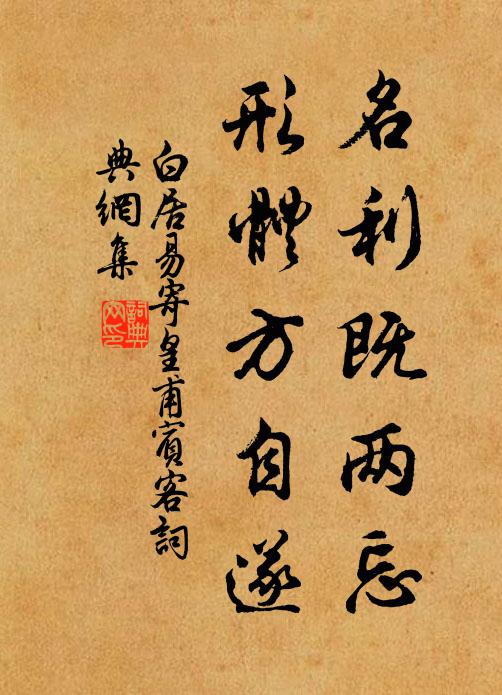 名利既两忘
形體方自遂
白居易寄皇甫賓客詞
典網集
詞典
网印